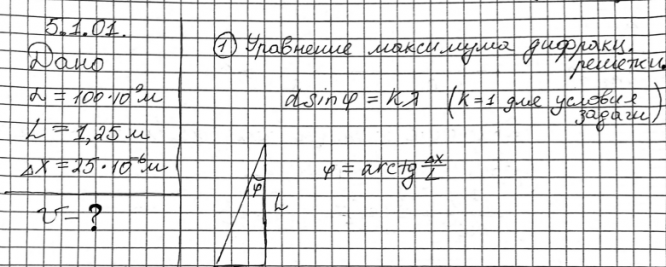 5.1.01.
Дано
d = 100·10⁻⁹ м
L = 1,25 м
Δx = 25·10⁻⁶ м
v - ?
① Уравнение максимума дифракц.
решетки.
d sin φ = kλ (k=1 для условия
задачи)
φ = arctg Δx/L
φ
L